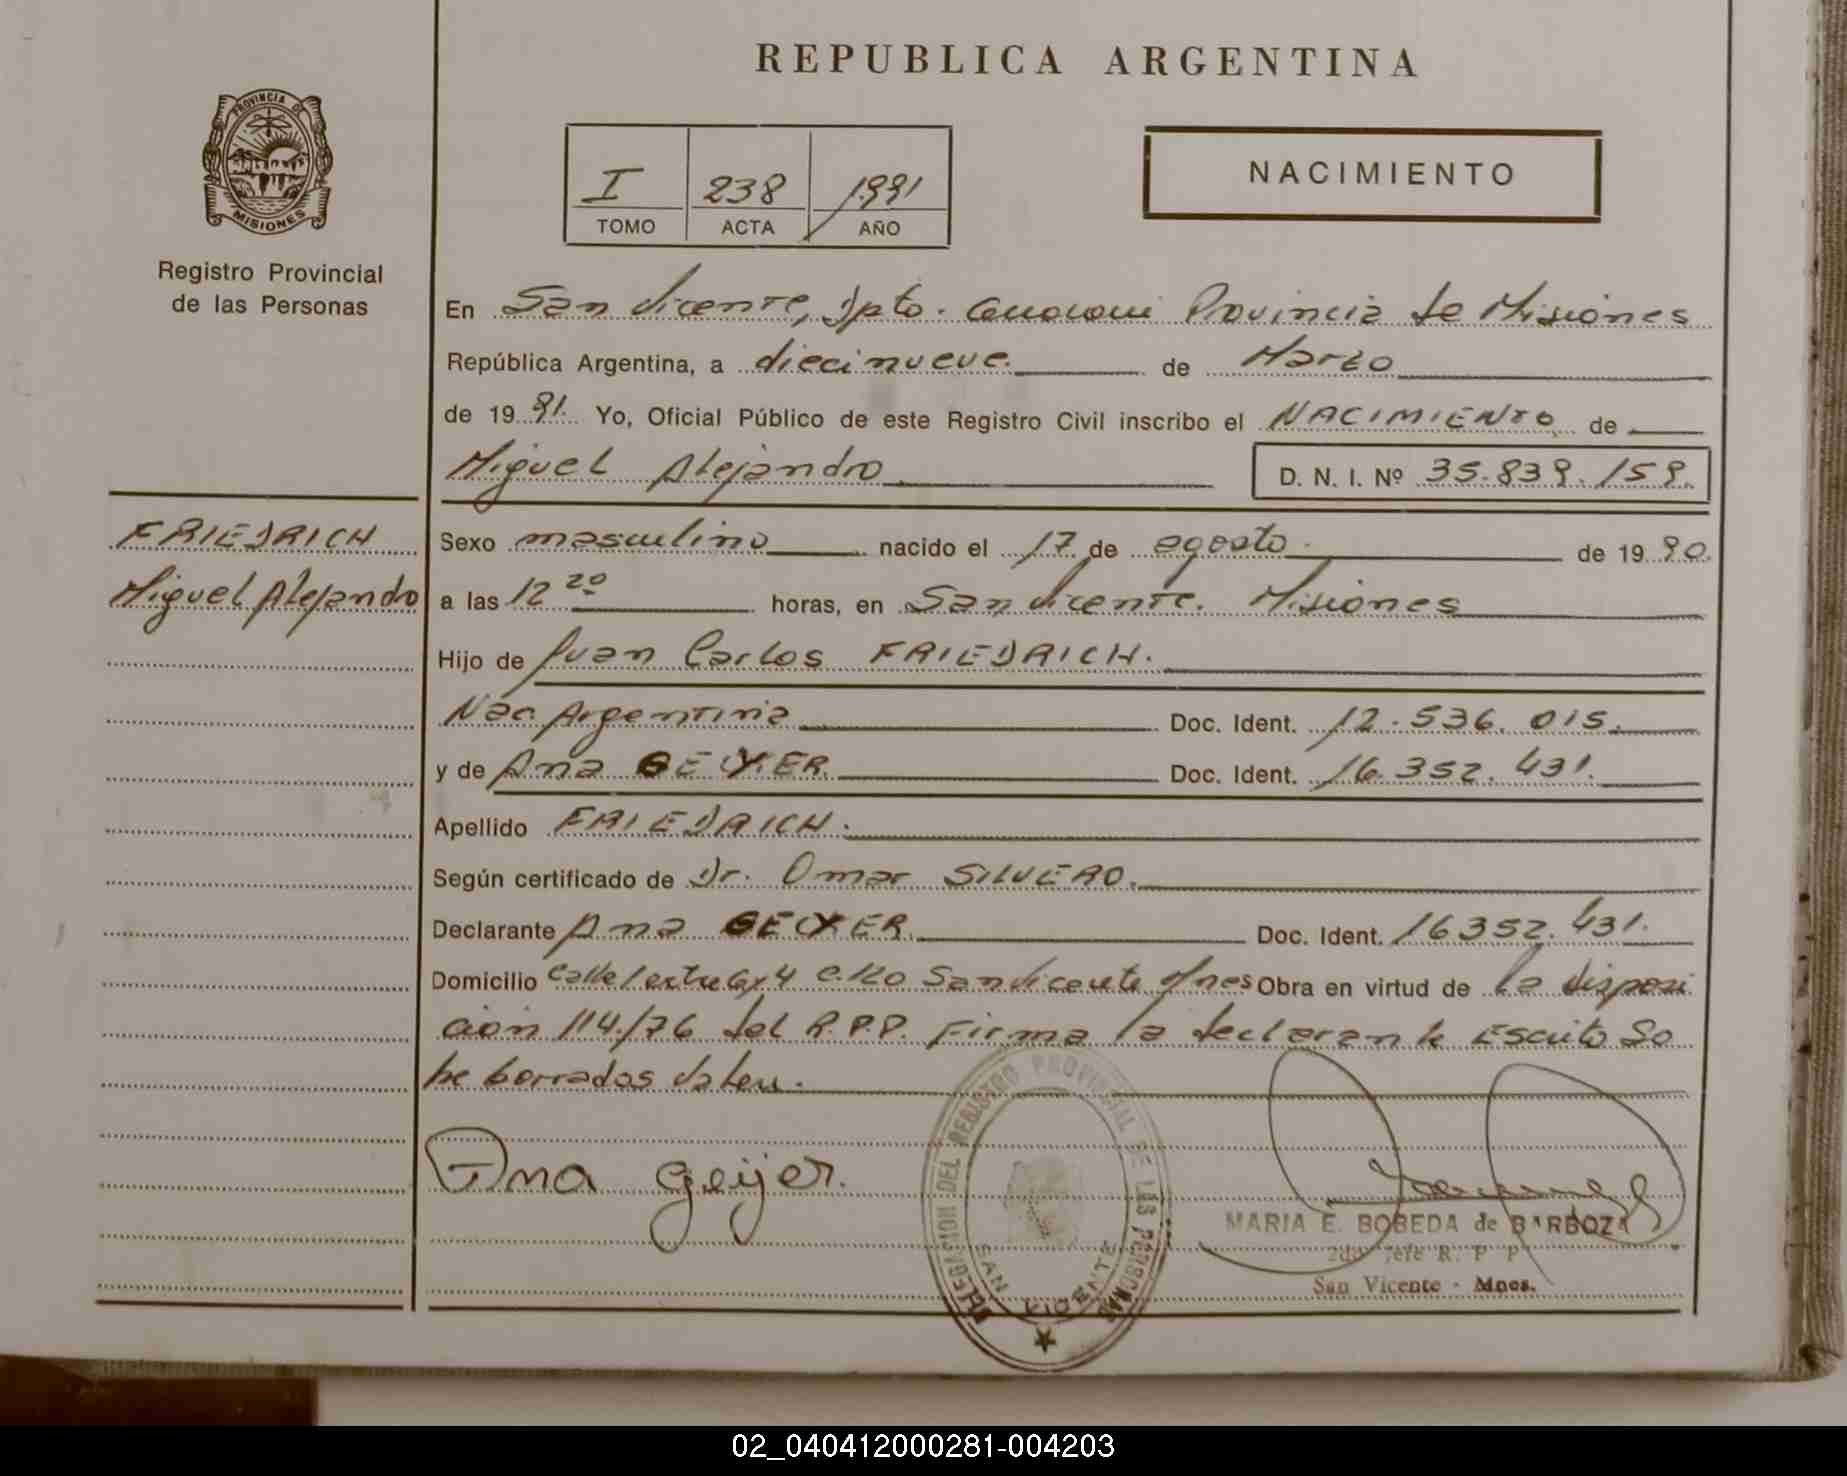 REPUBLICA ARGENTINA
PROVINCIA DE
MISIONES
Registro Provincial
de las Personas
I 238 1991
TOMO ACTA AÑO
NACIMIENTO
En San Vicente, Dpto. Provincia de Misiones
República Argentina, a diecinueve. de Marzo
de 19 91. Yo, Oficial Público de este Registro Civil inscribo el NACIMIENTO de
Miguel Alejandro D. N. I. Nº 35.839.159.
FRIEDRICH
Miguel Alejandro
Sexo masculino nacido el 17 de agosto. de 19 90.
a las 12 20 horas, en San Vicente. Misiones
Hijo de Juan Carlos FRIEDRICH.
Nac. Argentina Doc. Ident. 12.536.015.
y de Ana GEYER. Doc. Ident. 16.352.431.
Apellido FRIEDRICH.
Según certificado de Dr. Omar SILVERO.
Declarante Ana GEYER. Doc. Ident. 16352.431.
Domicilio San Vicente Mnes Obra en virtud de la disposi
ción 114/76 del R.P.P. Firma la declarante Escrito So
bre borrados valen.
Ana Geijer.
DELEGACION DEL REGISTRO PROVINCIAL DE LAS PERSONAS
SAN VICENTE
MARIA E. BOBEDA de BARBOZA
2do Jefe R. P P
San Vicente - Mnes.
02_040412000281-004203